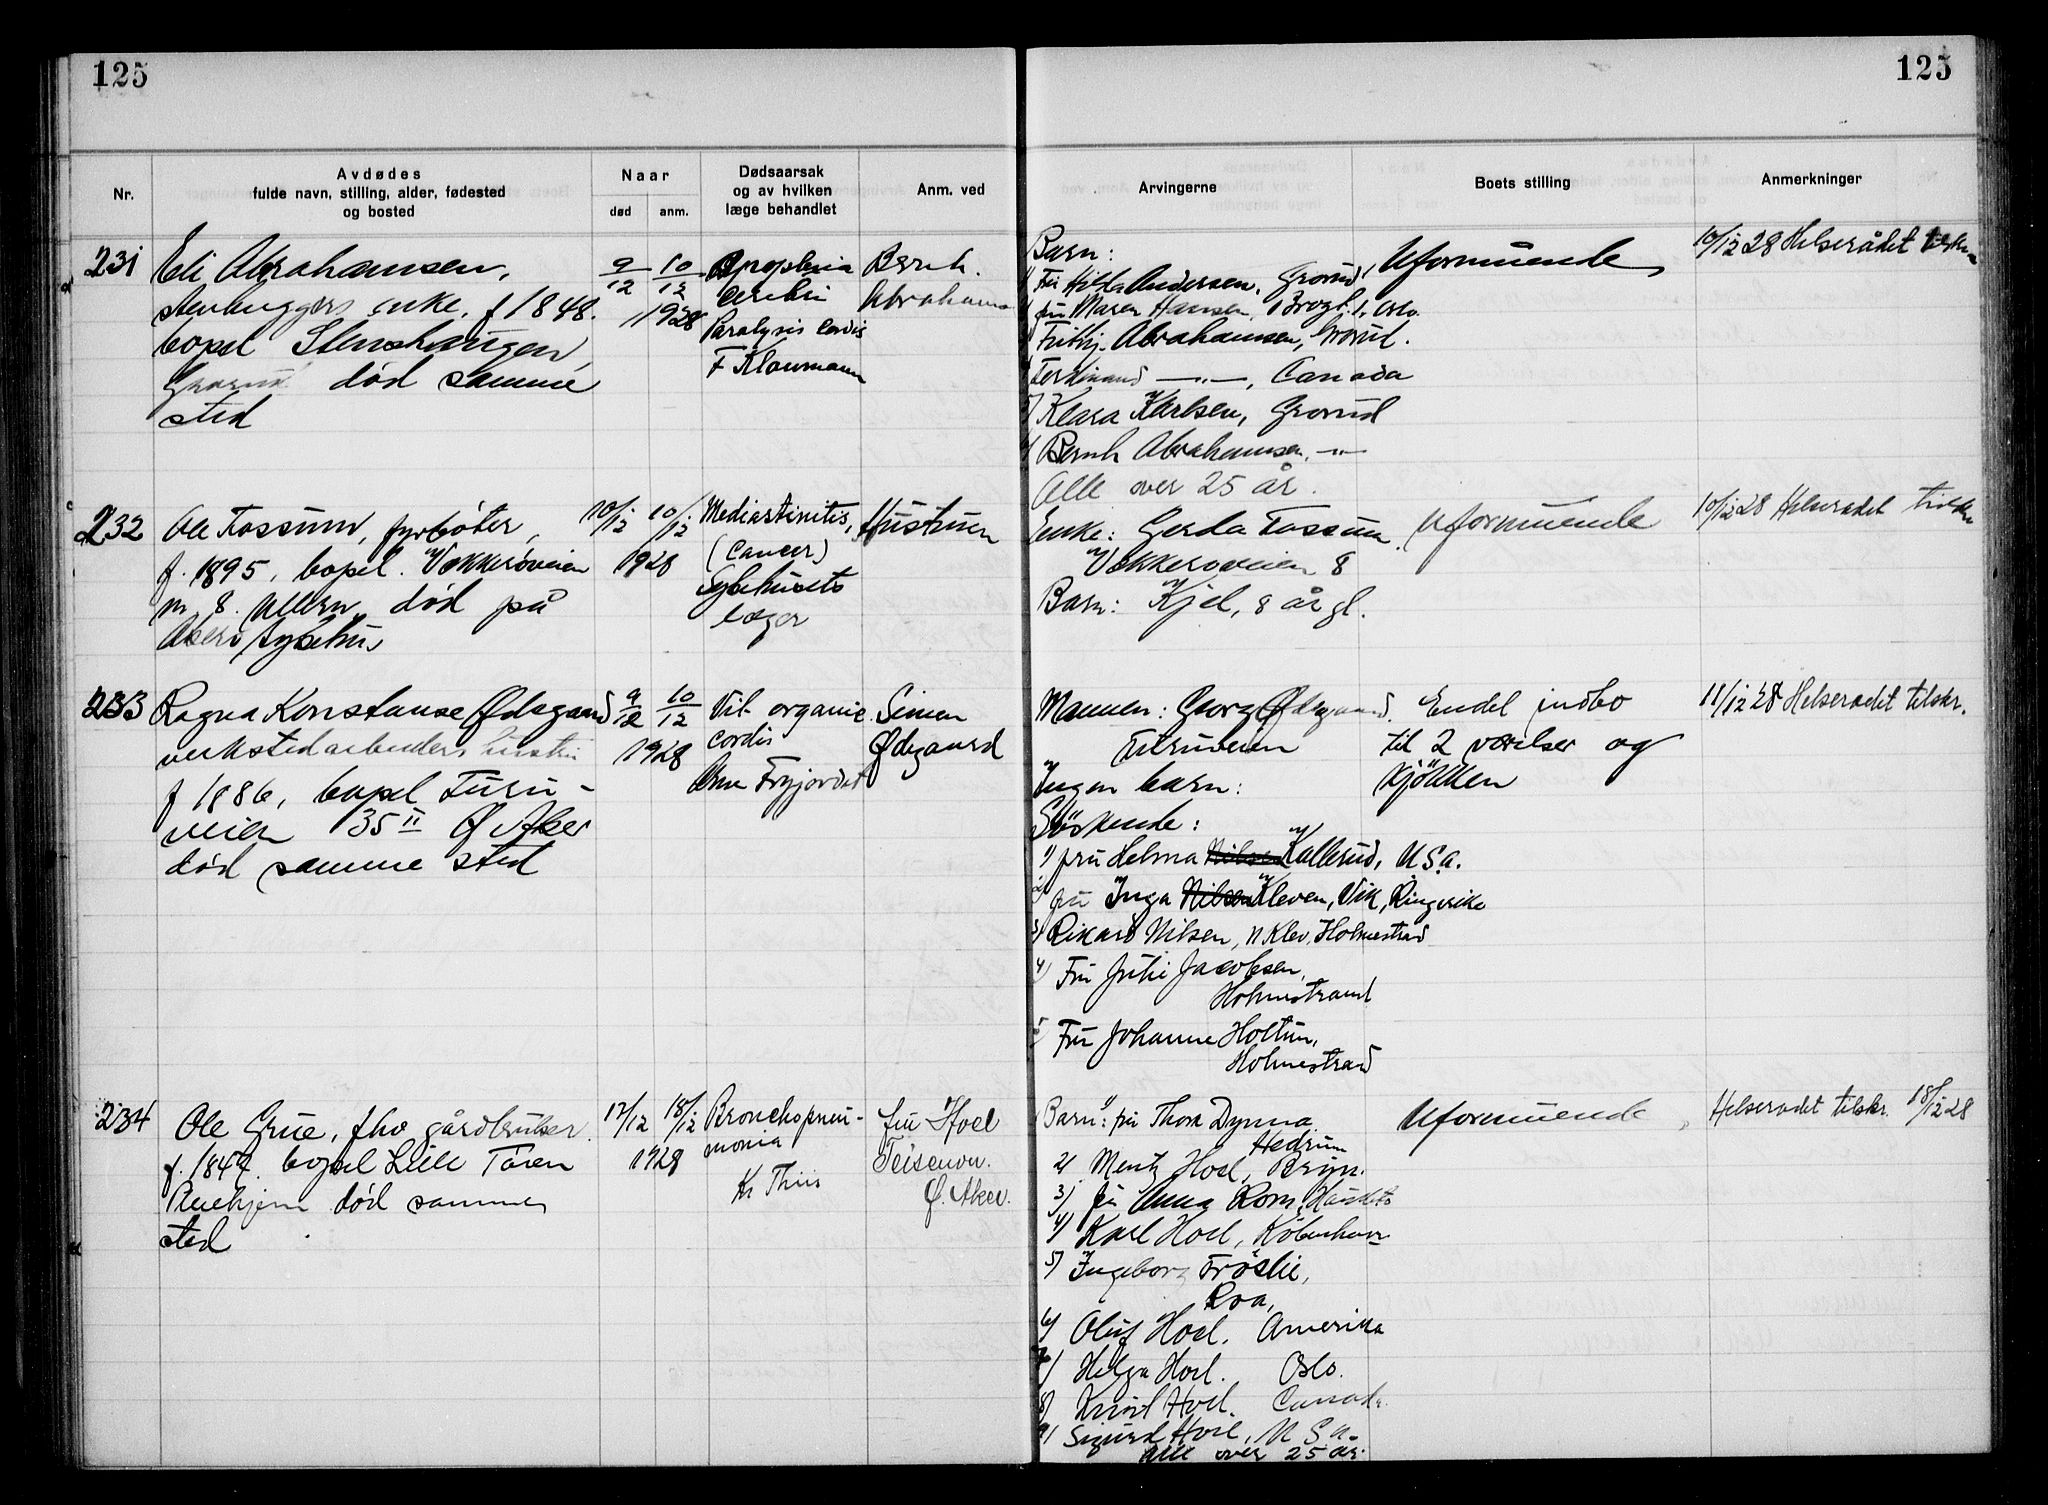 125
125
Nr.
Avdødes
fulde navn, stilling, alder, fødested
og bosted
Naar
død
anm.
Dødsaarsak
og av hvilken
læge behandlet
Anm. ved
Arvingerne
Boets stilling
Anmerkninger
231
Eli Abrahamsen,
stenhuggers enke, f 1848.
bopel Stenshaugen,
Grorud død samme
sted
9/12 10/12
1928
Apoplexia
cerebri
Paralysis cordis
F Klaumann
Bernh.
Abrahams
Barn:
Fru Hilda Andersen, Grorud,
fru Maren Hansen, Brogt. 1, Oslo.
Frithj. Abrahamsen, Grorud.
Ferdinand —"—, Canada
Klara Karlsen, Grorud
Bernh Abrahamsen, —"—
Alle over 25 år.
Uformuende
10/12 28 Helserådet tilskr
232
Ole Fossum, fyrbøter,
f. 1895, bopel. Vækkerøveien
nr 8. Ullern, død på
Akers sykehus
10/12 10/12
1928
Mediastinitis,
(Cancer)
Sykehusets
læger
Hustruen
Enke: Gerda Fossum,
Vækkerøveien 8
Barn: Kjel, 8 år gl.
Uformuende
10/12 28 Helserådet tilskr
233
Ragna Konstanse Ødegaard
verkstedarbeiders hustru
f 1886, bopel Furu-
veien 35 II Ø Aker
død samme sted
9/12 10/12
1928
Vit. organic.
cordis
Simen
Ødegaard
Mannen: Georg Ødegaard.
Furuveien
Ingen barn:
Søskende:
1) fru Helma Nilsen Kallerud, U.S.A.
2) fru Inga Nilsen Kleven, Vik, Ringerike
3) Rikard Nilsen, N Klev, Holmestrand
4) Fru Julie Jacobsen,
Holmestrand
5 Fru Johanne Holtun,
Holmestrand
Endel indbo
til 2 værelser og
kjøkken
11/12 28 Helserådet tilskr.
234
Ole Grue, fhv gårdbruker.
f. 1847. bopel Lille Tøien
død samme
sted
17/12 18/12
1928
Bronchopneu-
monia
Kr Thiis
fru Hoel
Teisenvn.
Ø. Aker.
Barn: 1) fru Thora Dynna
Hedrum
2) Mentz Hoel, Bryn.
3) fru Anna Rom,
4) Karl Hoel, København
5) Ingeborg Frøslie,
Roa,
6) Oluf Hoel. Amerika
7) Helga Hoel. Oslo.
8) Hoel. Canada.
9) Sigurd Hoel, U S A.
Alle over 25 år.
Uformuende
Helserådet tilskr. 18/12 28